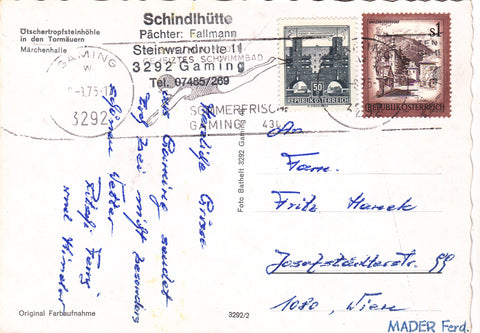 Ötschertropfsteinhöhle
in den Tormäuern
Märchenhalle
Schindlhütte
Pächter: Fallmann
Steinwandrotte 11
3292 Gaming
Tel. 07485/269
GEHEIZTES SCHWIMMBAD
SOMMERFRISCHE
GAMING
GAMING
75-1
3292
50
REPUBLIK ÖSTERREICH
S1
REPUBLIK ÖSTERREICH
Herzliche Grüsse
aus Gaming sendet
bei nicht besonders
schönem Wetter
und
An
Fam.
Fritz Hanek
Josefstädterstr.
1080, Wien
Foto Bathelt 3292 Gaming
Original Farbaufnahme
3292/2
MADER Ferd.